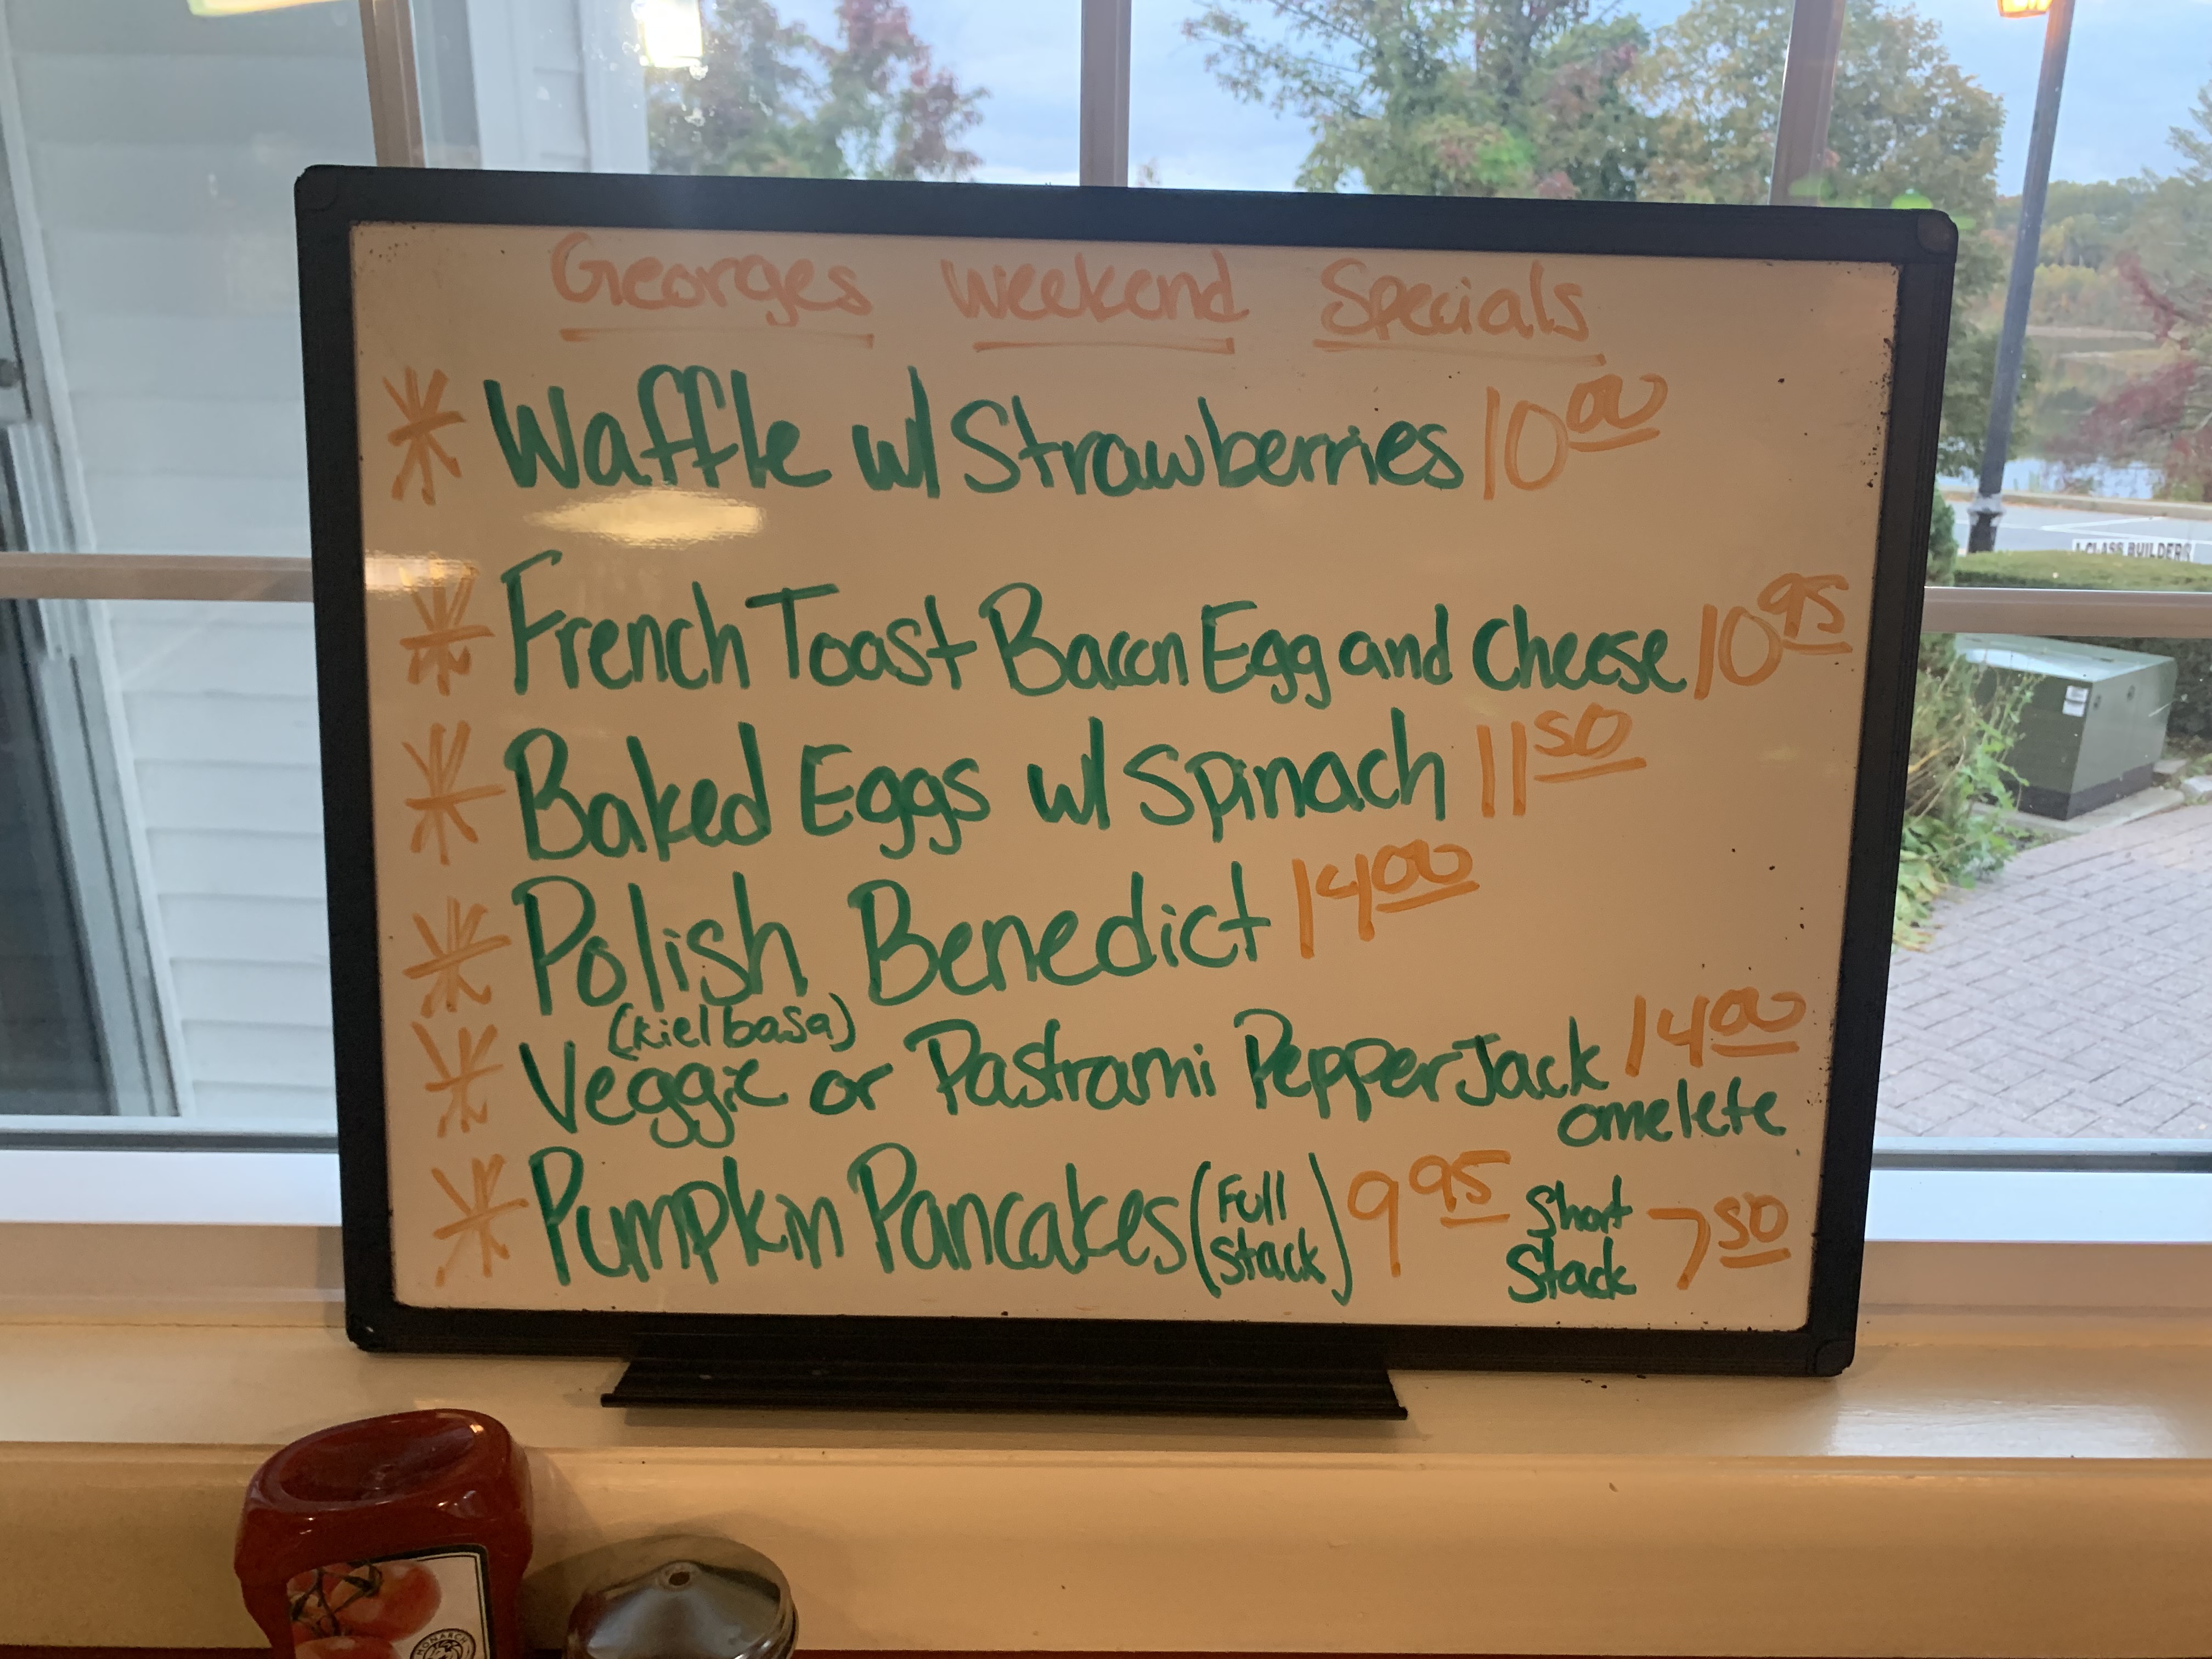 Georges Weekend Specials
Waffle w/ Strawberries 10 00
French Toast Bacon Egg and Cheese 10 95
Baked Eggs w/ Spinach 11 50
Polish Benedict 14 00
(kielbasa)
Veggie or Pastrami PepperJack 14 00
omelete
Pumpkin Pancakes (Full Stack) 9 95 Short Stack 7 50
A CLASS BUILDERS
MONARCH